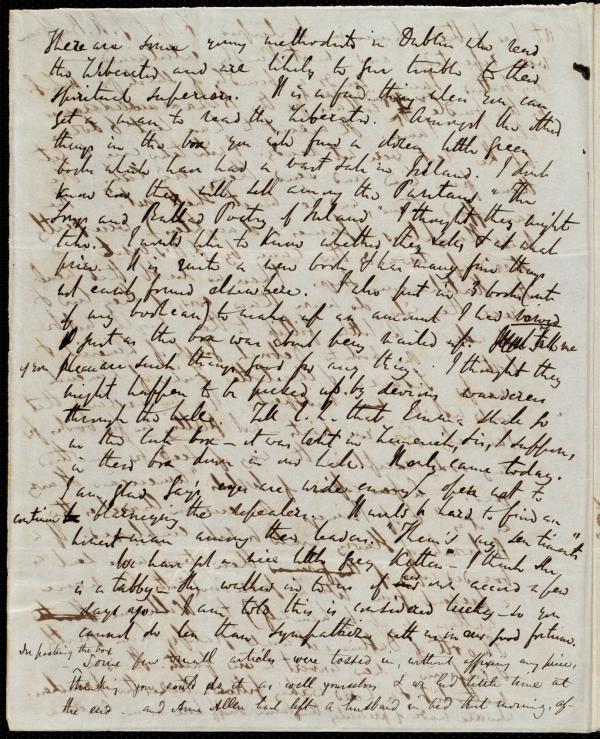 There are some young methodists in Dublin who read
the Liberator and are likely to give trouble to their
spiritual superiors. It is a fine thing when you can
get a man to read the Liberator. Amongst the other
things in the box you will find a dozen little green
books which have had a vast sale in Ireland. I don't
know how they will sell among the Puritans, "The
Songs and Ballad Poetry of Ireland" I thought they might
take. I would like to know whether they sell, & at what
price. It is quite a new book, & has many fine things
not easily found elsewhere. I also put in 3 books (out
of my bookcase) to make up an amount I had
just as the box was about being nailed up. Tell me
if you please are such things good for any thing. I thought they
might happen to be picked up by devious wanderers
through the hall. Tell that Emma
in the last box - it was lent in Limerick, Sir, I suppose,
in their box down in our Hall. came today.
I am glad Gay's eyes are wide enough open not to
continue blarneying the repealers. It would be hard to find an
honest man among their leaders. "Them's my sentiments"
We have got a nice little grey Kitten - I think she
is a tabby - She walked in to us of her own accord a few
days ago - I am told this is considered lucky - so you
cannot do less than sympathize with us in our good fortune.
In packing the box
Some few small articles were tossed in, without affixing any price,
thinking you could do it as well yourselves, & we had little time at
the end - and Anne Allen had left a husband in bed that morning, of-